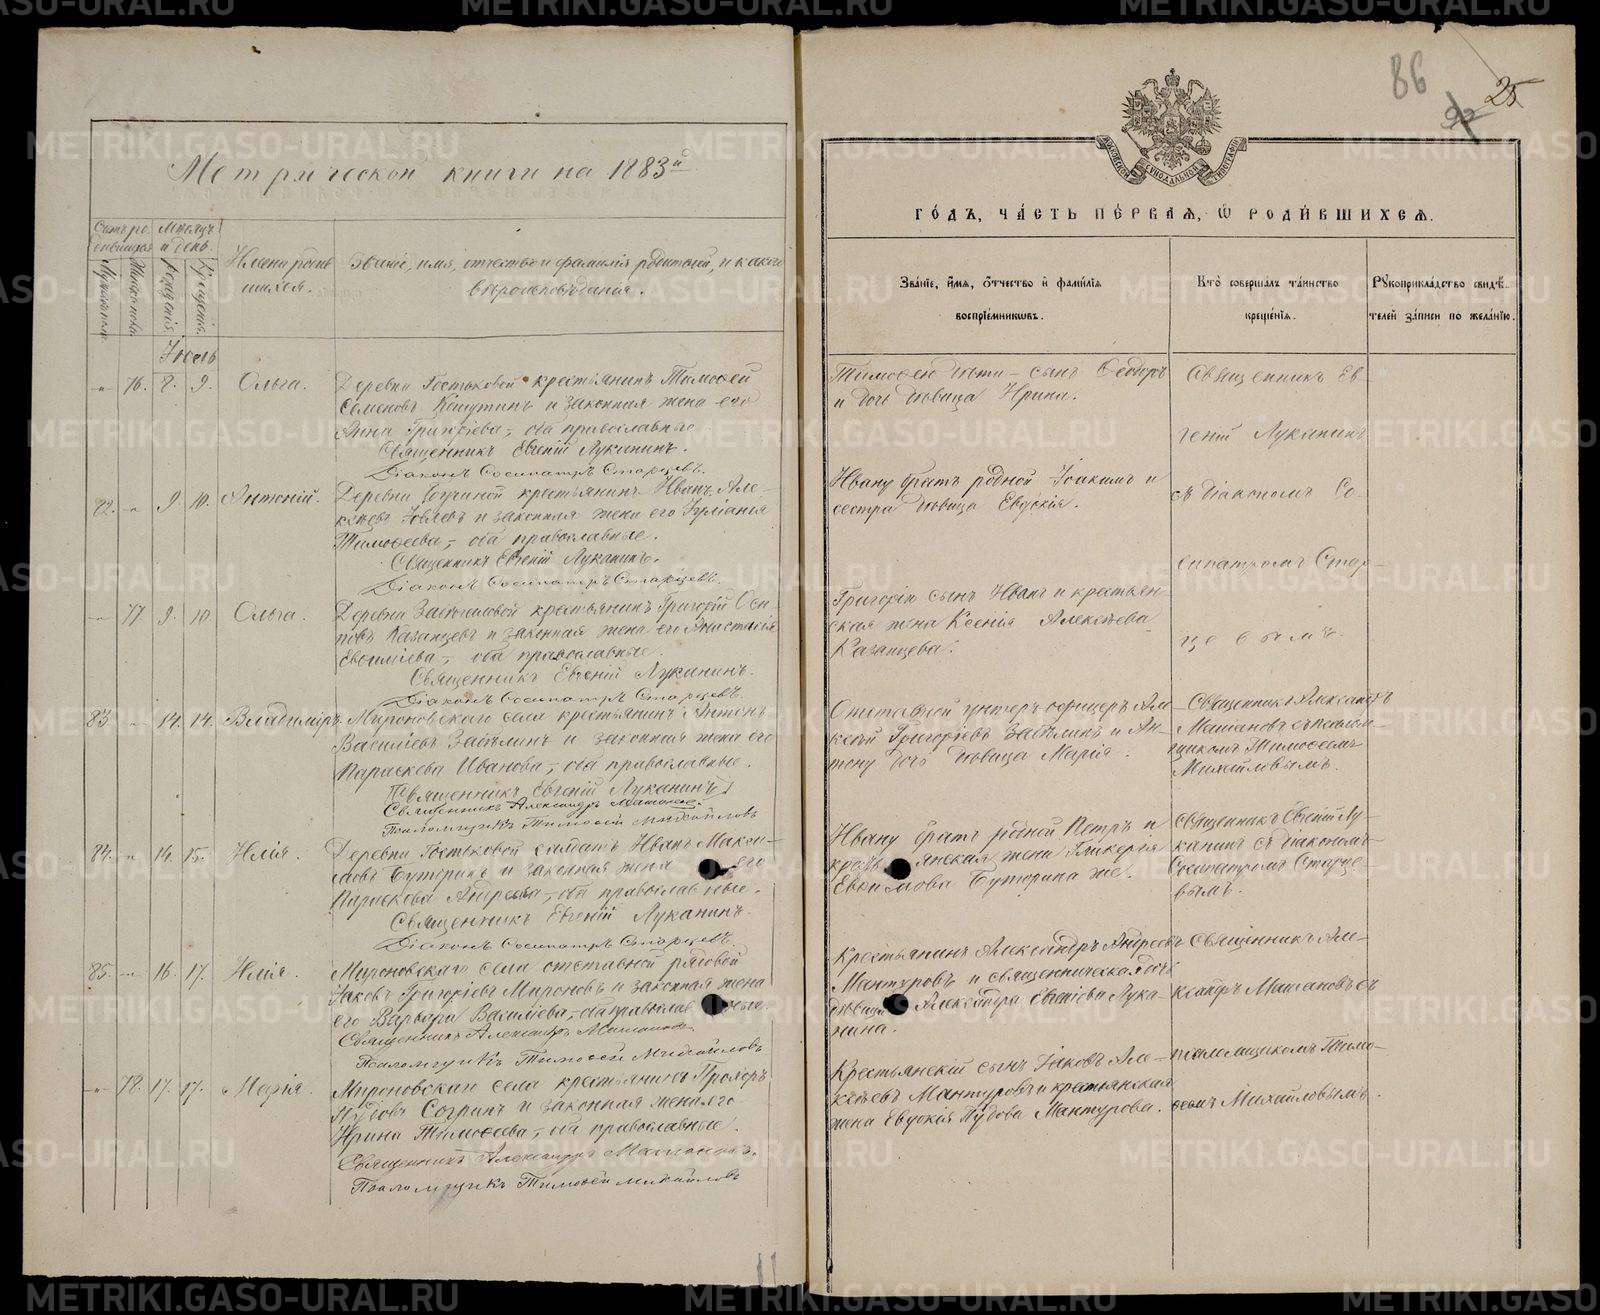 86
25
Метрической книги на 1883й
Счетъ ро- Месяцъ
дившихся и день.
Мужескаго
Женскаго
Рожденія.
Крещенія.
Имена родив-
шихся.
Званіе, имя, отчество и фамилія родителей, и какого
вѣроисповѣданія.
Іюль
„ 76. 8. 9. Ольга.
Деревни Гостьковой крестьянинъ Тимоѳей
Семеновъ Кошутинъ и законная жена его
Анна Григорьева, оба православные
Священникъ Евгеній Луканинъ.
Діаконъ Сосипатръ Старцевъ.
82. „ 9. 10. Антоній.
крестьянинъ Иванъ Але-
ксѣевъ и законная жена его Іуліанія
Тимоѳеева, оба православные.
Священникъ Евгеній Луканинъ.
Діаконъ Сосипатръ Старцевъ.
„ 77. 9. 10. Ольга.
Деревни крестьянинъ Григорій Оси-
повъ Казанцевъ и законная жена его Анастасія
Евѳиміева, оба православные.
Священникъ Евгеній Луканинъ.
Діаконъ Сосипатръ Старцевъ.
83. „ 14. 14. Владиміръ.
Мироновскаго села крестьянинъ Антонъ
Васильевъ Забѣлинъ и законная жена его
Параскева Иванова, оба православные.
Священникъ Евгеній Луканинъ
Священникъ Александръ
Псаломщикъ Тимоѳей Михайловъ
84. „ 14. 15. Илія.
Деревни Гостьковой солдатъ Иванъ Макси-
мовъ Бутюринъ и законная жена его
Параскева Андреева, оба православные.
Священникъ Евгеній Луканинъ.
Діаконъ Сосипатръ Старцевъ.
85. „ 16. 17. Илія.
Мироновскаго села отставной рядовой
Іаковъ Григорьевъ Мироновъ и законная жена
его Варвара Васильева, оба православные.
Священникъ Александръ
Псаломщикъ Тимоѳей Михайловъ
„ 78. 17. 17. Марія.
Мироновскаго села крестьянинъ Прохоръ
Пудовъ Согринъ и законная жена его
Ирина Тимоѳеева, оба православные.
Священникъ Александръ
Псаломщикъ Тимоѳей Михайловъ
МОСКОВСКОЙ СѴНОДАЛЬНОЙ ТИПОГРАФІИ
ГО́ДЪ, ЧА́СТЬ ПЕ́РВАѦ, Ѡ҆ РОДИ́ВШИХСѦ.
Зва́нїе, и҆́мѧ, ѻ҆́тчество и҆ фами́лїѧ
воспрїе́мникѡвъ.
Кто̀ соверша́лъ та́инство
креще́нїѧ.
Рꙋкоприкла́дство свидѣ́-
телей за́писи по жела́нїю.
Тимоѳею дѣти - сынъ Ѳедоръ
и дочь дѣвица Ирина.
Священникъ Ев-
геній Луканинъ
Ивану братъ родной Іоакимъ и
сестра дѣвица Евдокія.
съ діакономъ Со-
сипатромъ Стар-
Григорію сынъ Иванъ и крестьян-
ская жена Ксенія Алексѣева
Казанцева.
цевымъ.
Отставной унтеръ-офицеръ Але-
ксѣй Григорьевъ Забѣлинъ и Ан-
тону дочь дѣвица Марія.
Священникъ Александръ
съ псалом-
щикомъ Тимоѳеемъ
Михайловымъ.
Ивану братъ родной Петръ и
крестьянская жена Гликерія
Евѳимова Бутюрина же.
Священникъ Евгеній Лу-
канинъ съ діакономъ
Сосипатромъ Старце-
вымъ.
Крестьянинъ Александръ Андреевъ
Мантуровъ и священническая дочь
дѣвица Александра Евгеніева Лука-
нина.
Священникъ Але-
ксандръ съ
Крестьянскій сынъ Іаковъ Але-
ксѣевъ Мантуровъ и крестьянская
жена Евдокія Пудова Мантурова.
псаломщикомъ Тимо-
ѳеемъ Михайловымъ.
METRIKI.GASO-URAL.RU